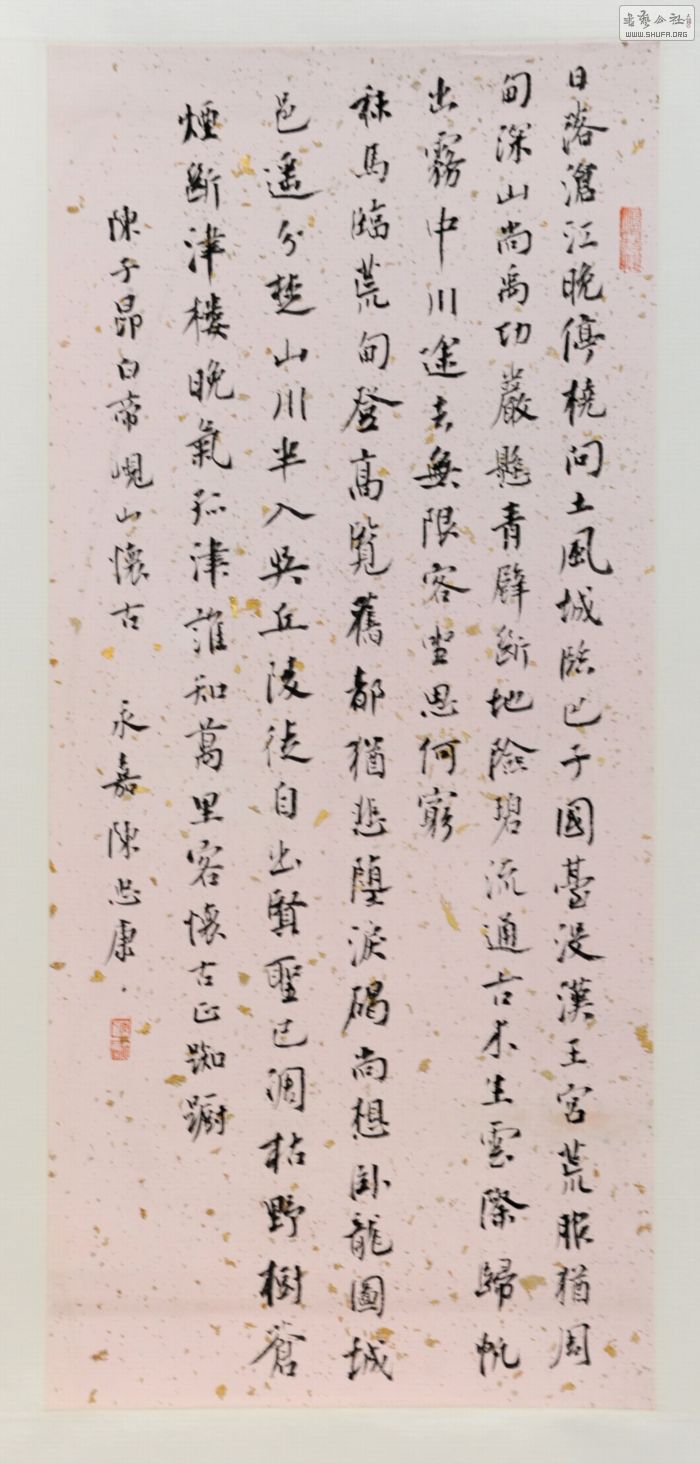 日落滄江晚停橈問土風城臨巴子國臺没漢王宮荒服猶周
甸深山尚禹功巖懸青壁斷地險碧流通古木生雲際歸帆
出霧中川途去無限客坐思何窮
秣馬臨荒甸登高覽舊都猶悲墮淚碣尚想卧龍圖城
邑遥分楚山川半入吳丘陵徒自出賢聖已凋枯野樹蒼
煙斷津楼晚氣孤津誰知萬里客懷古正踟躕
陳子昂白帝峴山懷古 永嘉陳忠康
書藝公社
WWW.SHUFA.ORG